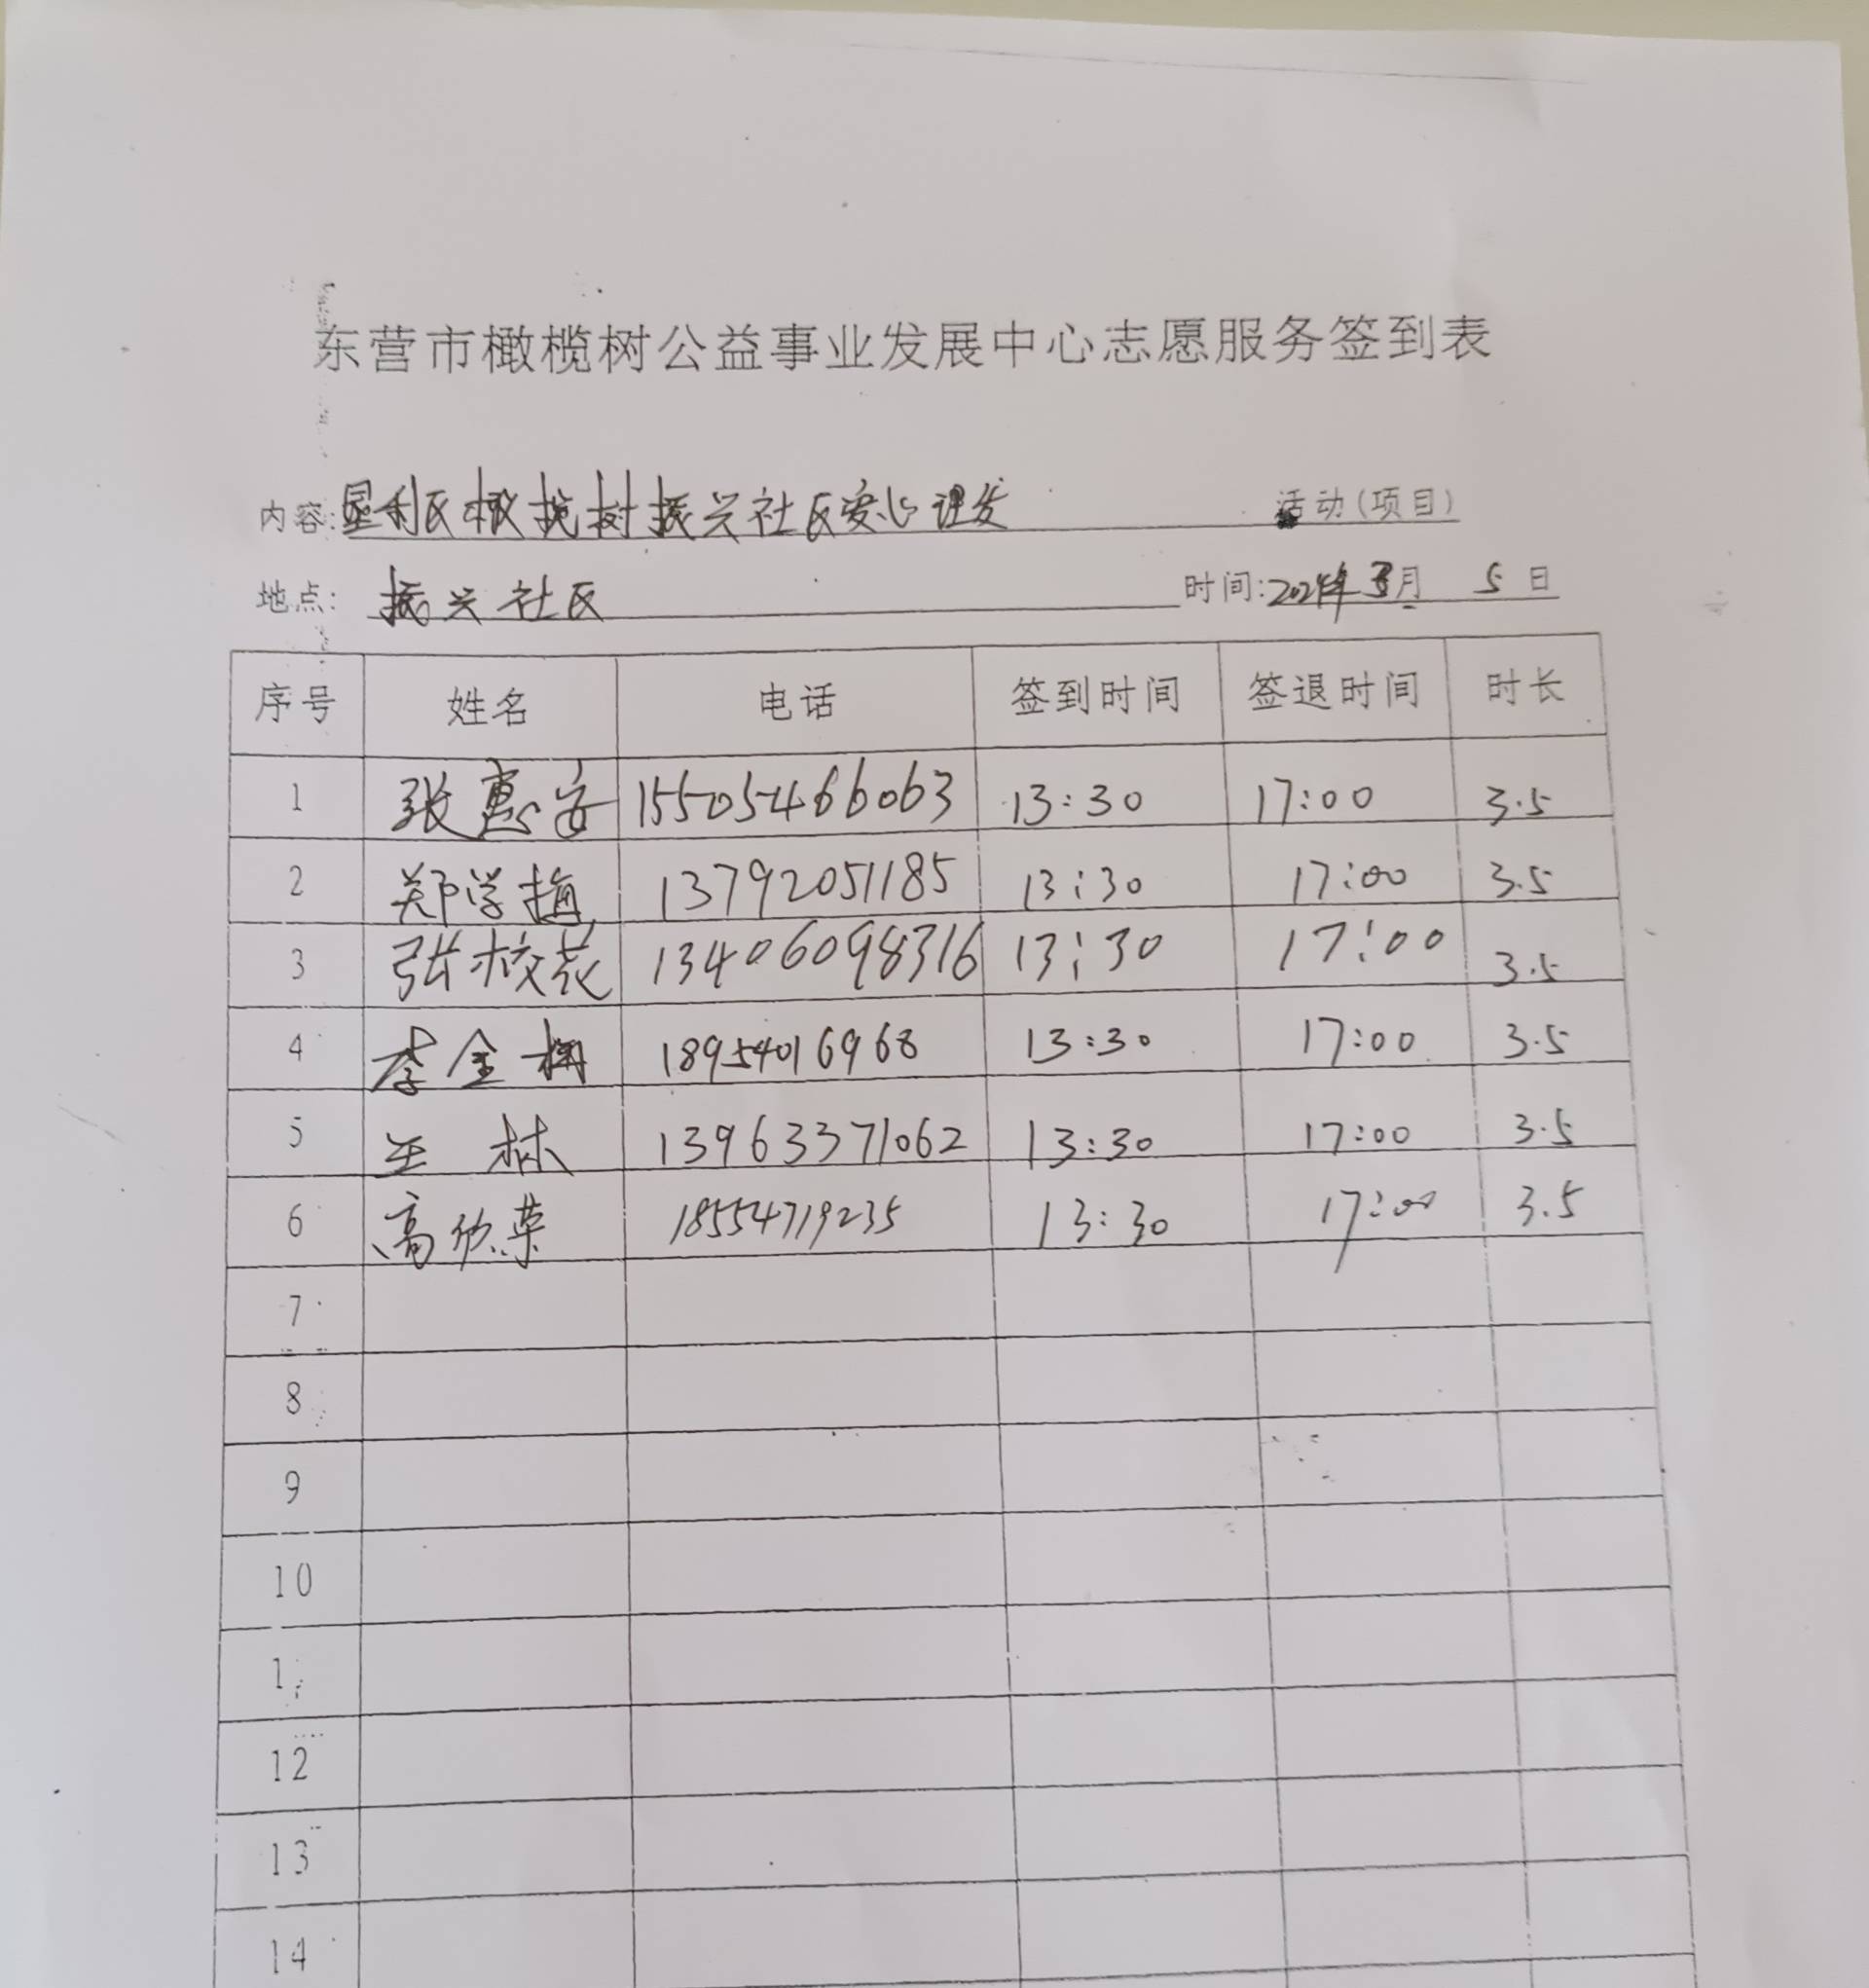 东营市橄榄树公益事业发展中心志愿服务签到表
内容:垦利区橄榄树振兴社区爱心理发 活动(项目)
地点: 振兴社区 时间:2024年3月 5日
序号 姓名 电话 签到时间 签退时间 时长
1 张惠安 15505466063 13:30 17:00 3.5
2 郑学梅 13792051185 13:30 17:00 3.5
3 张校花 13406098316 13:30 17:00 3.5
4 李金 18954016968 13:30 17:00 3.5
5 王林 13963371062 13:30 17:00 3.5
6 高欣荣 18554719235 13:30 17:00 3.5
7
8
9
10
1
12
13
14